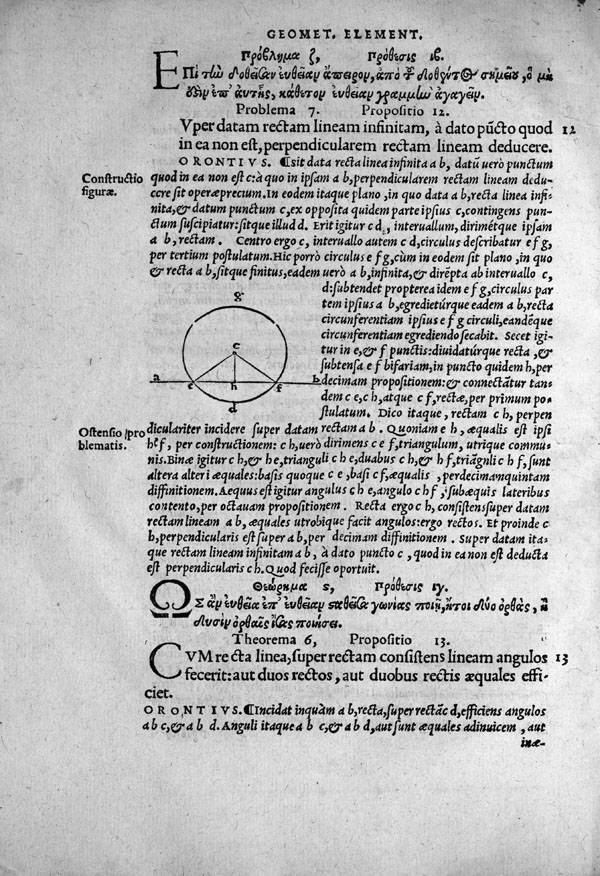 GEOMET. ELEMENT.
Πρόβλημα ζ, Πρόθεσις ιβ.
ἘΠὶ τὴν δοθεῖσαν εὐθεῖαν ἄπειρον, ἀπὸ τοῦ δοθέντος σημείου, ὃ μή
ἐστιν ἐπ' αὐτῆς, κάθετον εὐθεῖαν γραμμὴν ἀγαγεῖν.
Problema 7. Propositio 12.
Vper datam rectam lineam infinitam, à dato pũcto quod 12
in ea non est, perpendicularem rectam lineam deducere.
Constructio
figuræ.
ORONTIVS. ¶sit data recta linea infinita a b, datũ uerò punctum
quod in ea non est c: à quo in ipsam a b, perpendicularem rectam lineam dedu-
cere sit operæprecium. In eodem itaque plano, in quo data a b, recta linea infi-
nita, & datum punctum c, ex opposita quidem parte ipsius c, contingens pun-
ctum suscipiatur: sitque illud d. Erit igitur c d, interuallum, dirimétque ipsam
a b, rectam. Centro ergo c, interuallo autem c d, circulus describatur e f g,
per tertium postulatum. Hic porrò circulus e f g, cùm in eodem sit plano, in quo
& recta a b, sitque finitus, eadem uerò a b, infinita, & dirẽpta ab interuallo c,
d: subtendet propterea idem e f g, circulus par
tem ipsius a b, egrediетúrque eadem a b, recta
circunferentiam ipsius e f g circuli, eandẽque
circunferentiam egrediendo secabit. Secet igi-
tur in e, & f punctis: diuidatúrque recta, &
subtensa e f bifariam, in puncto quidem h, per
decimam propositionem: & connectãtur tan-
dem c e, c h, atque c f, rectæ, per primum po-
stulatum. Dico itaque, rectam c h, perpen
g
c
a e h f b
d
Ostensio pro
blematis.
diculariter incidere super datam rectam a b. Quoniam e h, æqualis est ipsi
h f, per constructionem: c h, uerò dirimens c e f, triangulum, utrique commu-
nis. Binæ igitur c h, & h e, trianguli c h e, duabus c h, & h f, triãgnli c h f, sunt
altera alteri æquales: basis quoque c e, basi c f, æqualis, per decimamquintam
diffinitionem. Aequus est igitur angulus c h e, angulo c h f, subæquis lateribus
contento, per octauam propositionem. Recta ergo c h, consistens super datam
rectam lineam a b, æquales utrobique facit angulos: ergo rectos. Et proinde c
h, perpendicularis est super a b, per decimam diffinitionem. Super datam ita-
que rectam lineam infinitam a b, à dato puncto c, quod in ea non est deducta
est perpendicularis c h. Quod fecisse oportuit.
Θεώρημα ς, Πρόθεσις ιγ.
ὩΣ ἂν εὐθεῖα ἐπ' εὐθεῖαν σταθεῖσα γωνίας ποιῇ, ἤτοι δύο ὀρθὰς, ἢ
δυσὶν ὀρθαῖς ἴσας ποιήσει.
Theorema 6, Propositio 13.
CVM recta linea, super rectam consistens lineam angulos 13
fecerit: aut duos rectos, aut duobus rectis æquales effi-
ciet.
ORONTIVS. ¶Incidat inquàm a b, recta, super rectãc d, efficiens angulos
a b c, & a b d. Anguli itaque a b c, & a b d, aut sunt æquales adinuicem, aut
inæ-